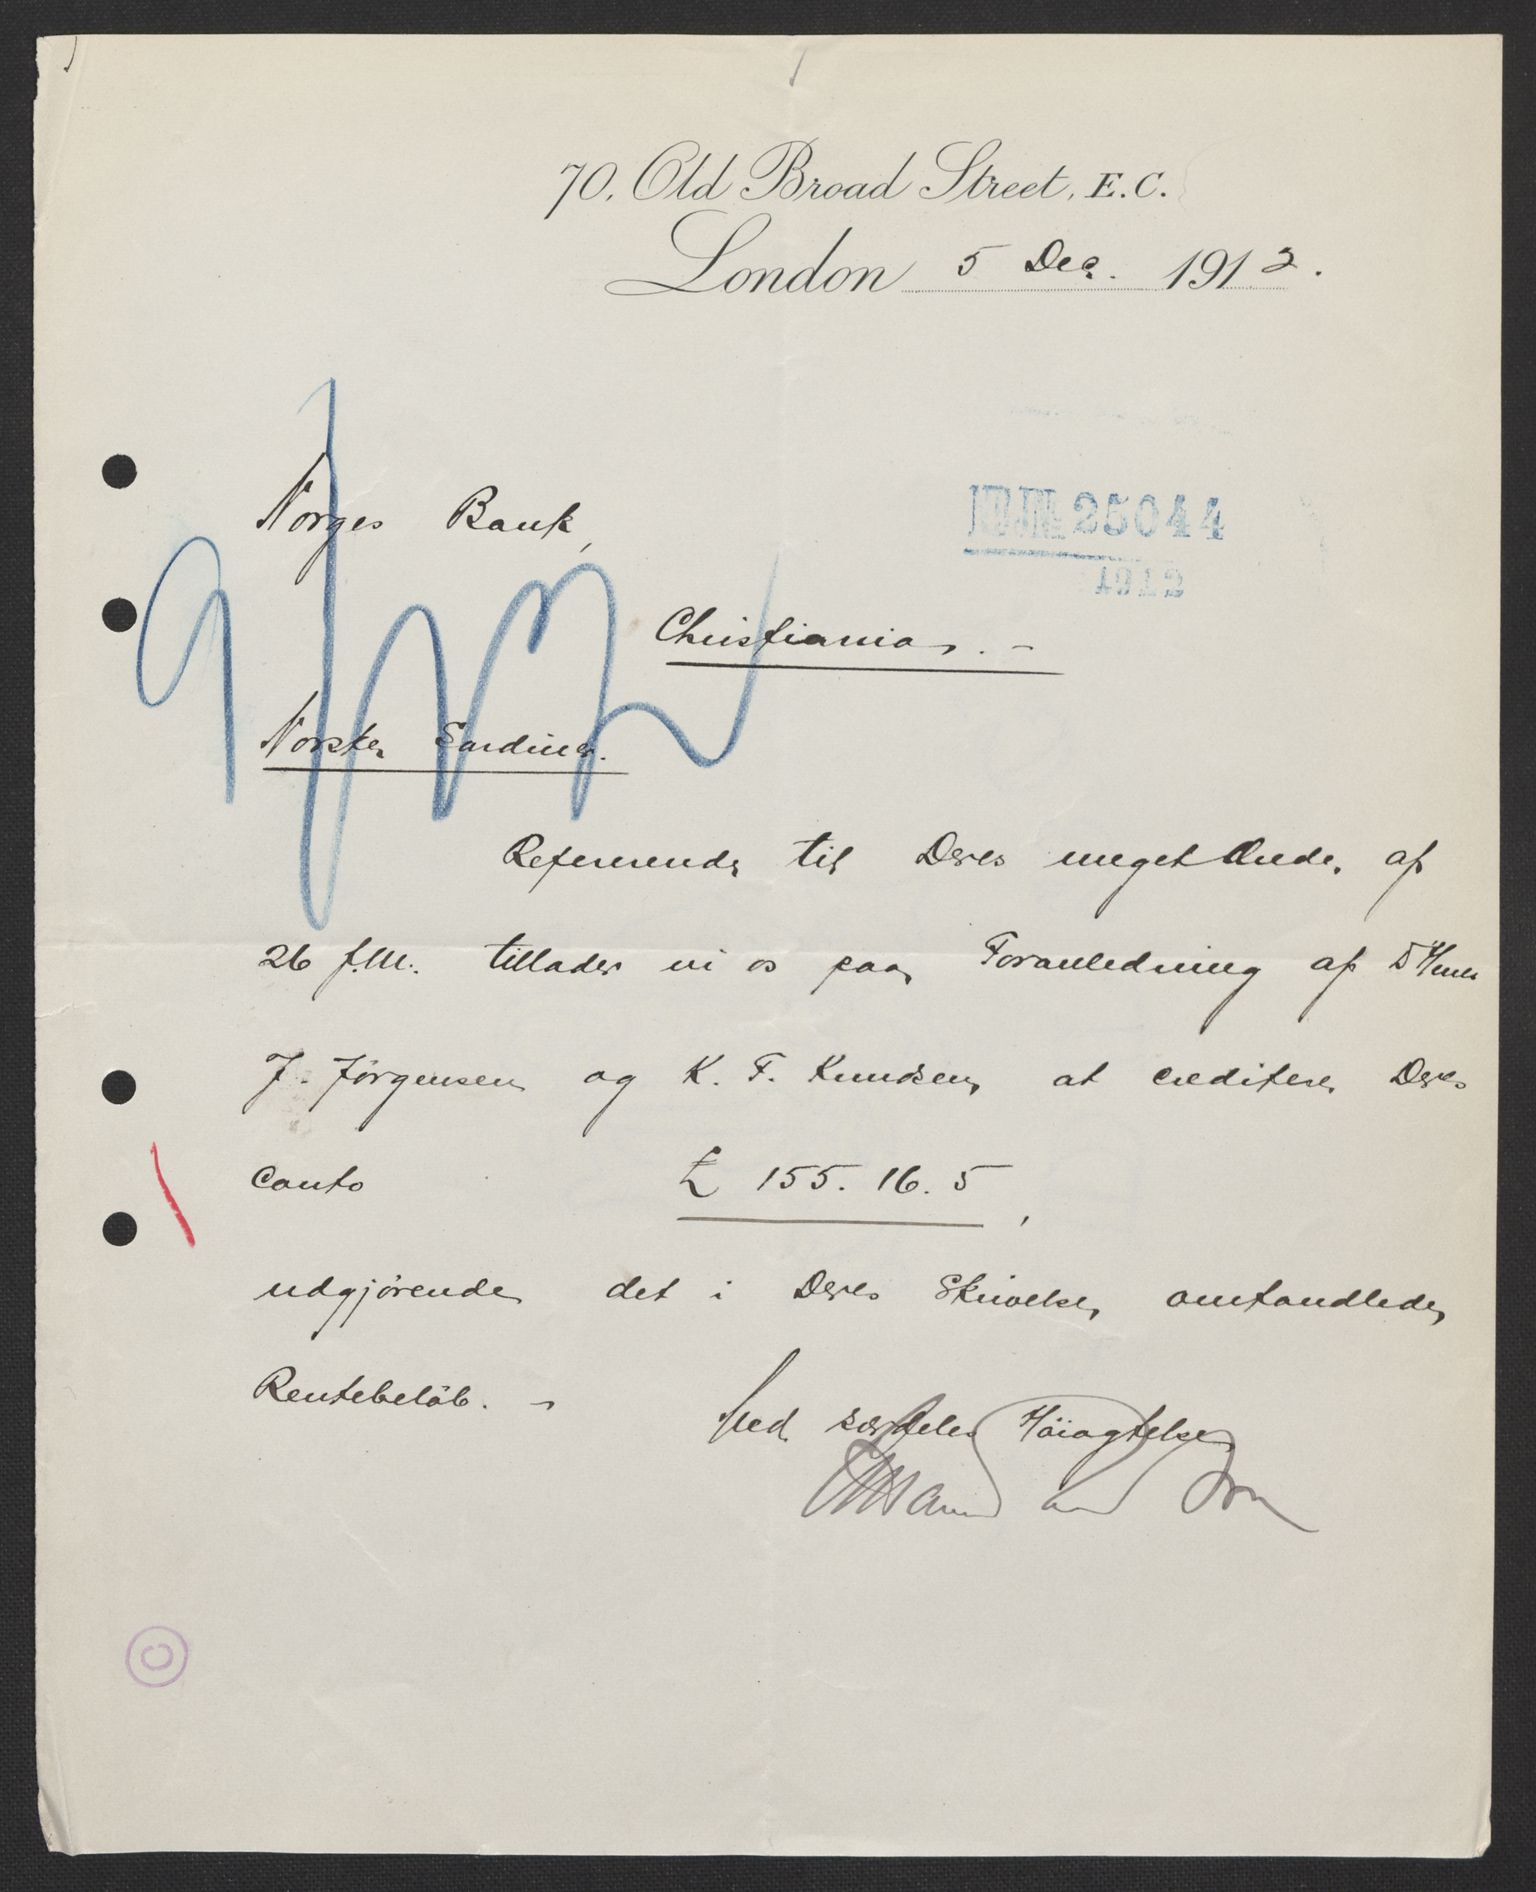 70, Old Broad Street, E.C.
London 5 Dec. 1912.
25044
1912
Norges Bank,
Christiania. -
Norske Sardiner.
Refererende til Deres meget ærede af
26 f.M. tillader vi os paa Foranledning af D'Hrrer
J. Jörgensen og K. F. Knudsen at creditere Deres
Conto £ 155. 16. 5,
udgjörende det i Deres Skrivelse omhandlede
Rentebelöb. -
Med særdeles Höiagtelse
and Son
C